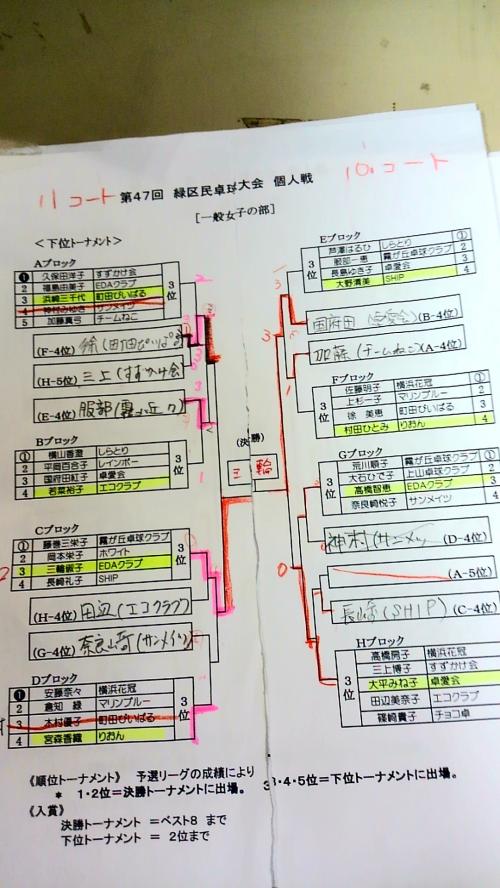 11コート
10コート
第47回 緑区民卓球大会 個人戦
[一般女子の部]
＜下位トーナメント＞
Aブロック
❶ 久保田洋子 すずかけ会
2 福島由美子 EDAクラブ
3 浜崎三千代 町田ぴいぱる
4 神村みゆき サンメイツ
5 加藤真弓 チームねこ
3位
(F-4位) 徐(町田ぴいぱる)
(H-5位) 三上(すずかけ会
(E-4位) 服部(霧が丘ク)
Bブロック
① 横山香澄 しらとり
2 平岡百合子 レインボー
3 国府田紅子 卓愛会
4 若菜裕子 エコクラブ
3位
Cブロック
① 藤巻三栄子 霧が丘卓球クラブ
2 岡本栄子 ホワイト
3 三輪淑子 EDAクラブ
4 長崎礼子 SHIP
3位
(H-4位) 田辺(エコクラブ)
(G-4位) 奈良崎(サンメイツ)
Dブロック
❶ 安藤奈々 横浜花冠
2 倉知 緑 マリンブルー
3 木村優子 町田ぴいぱる
4 宮森香織 りおん
3位
(決勝)
三輪
Eブロック
芦澤はるひ しらとり ①
服部一恵 霧が丘卓球クラブ 2
長島ゆき子 卓愛会 3
大野清美 SHIP 4
3位
国府田(卓愛会) (B-4位)
加藤(チームねこ) (A-4位)
Fブロック
佐藤明子 横浜花冠 ①
上杉一子 マリンブルー 2
徐 美恵 町田ぴいぱる 3
村田ひとみ りおん 4
3位
Gブロック
荒川順子 霧が丘卓球クラブ
大石ひで子 上山卓球クラブ
高橋智恵 EDAクラブ
奈良崎悦子 サンメイツ
3位
神村(サンメイツ (D-4位)
(A-5位)
長崎(SHIP) (C-4位)
Hブロック
高橋房子 横浜花冠
三上博子 すずかけ会
大平みね子 卓愛会
田辺美奈子 エコクラブ
篠崎貴子 チョコ卓
3位
《順位トーナメント》 予選リーグの成績により
＊ 1・2位＝決勝トーナメントに出場。 3・4・5位＝下位トーナメントに出場。
《入賞》
決勝トーナメント ＝ベスト8 まで
下位トーナメント ＝ 2位まで